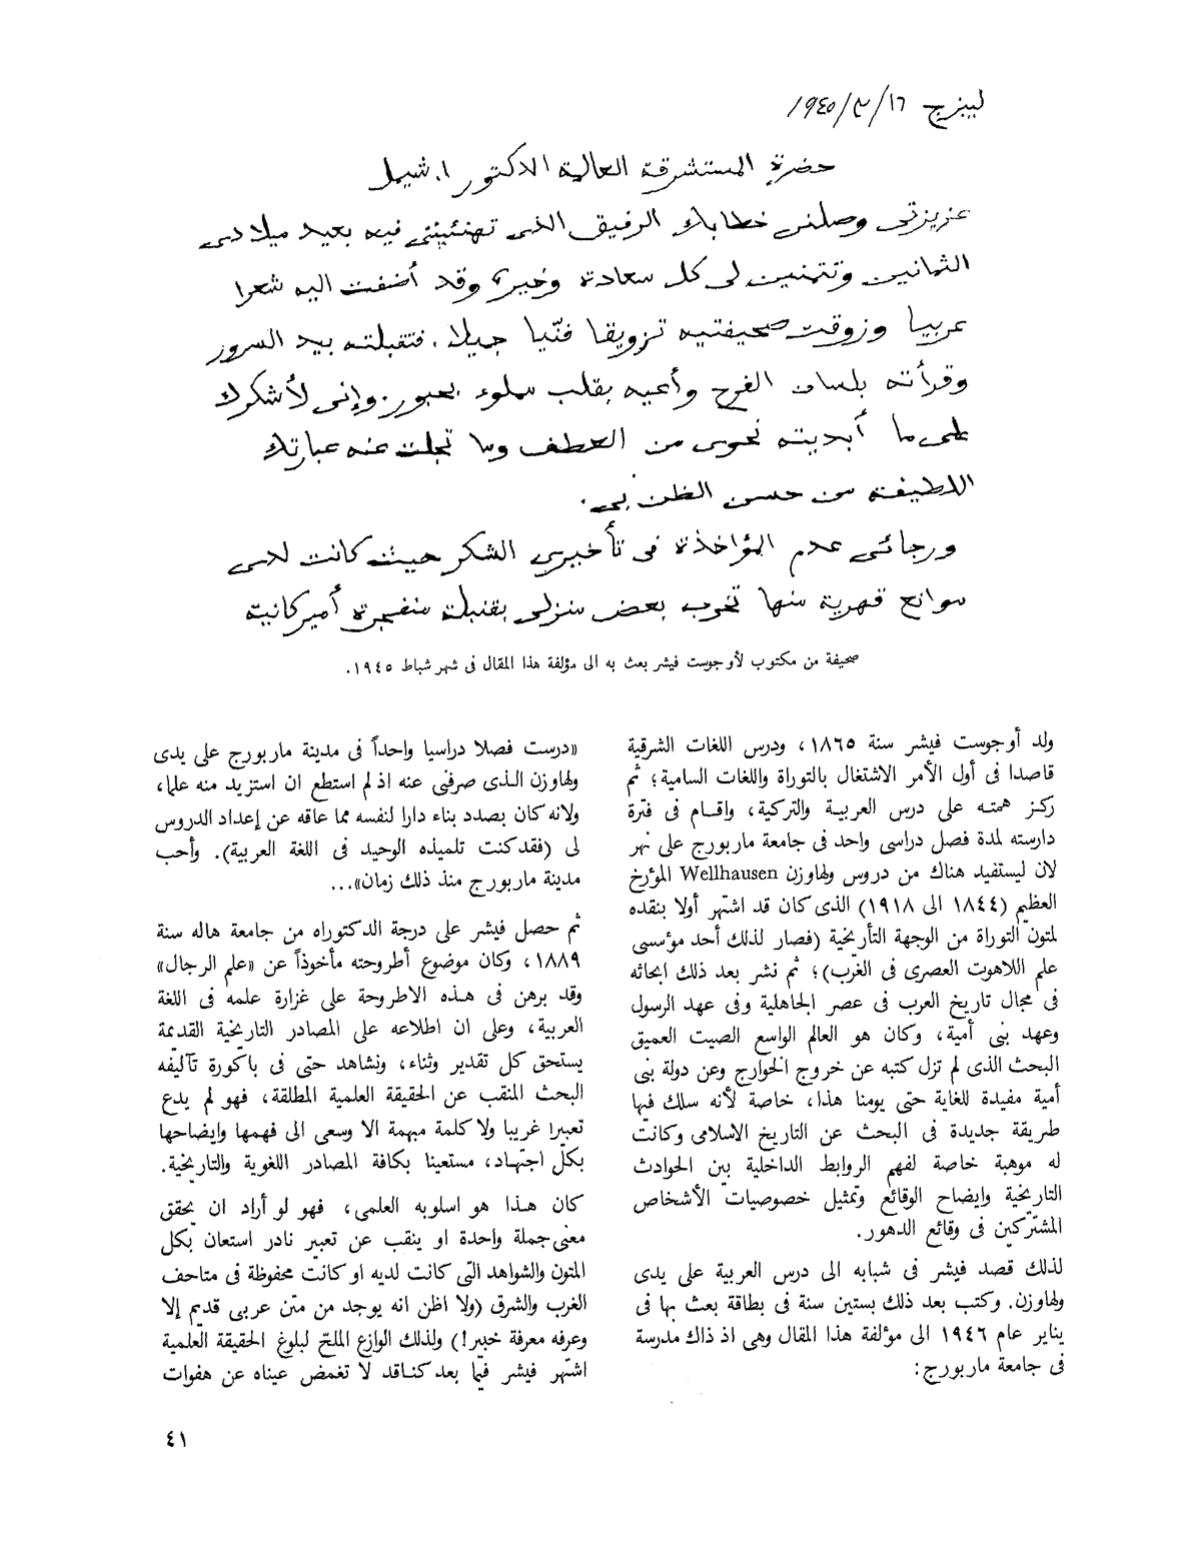 ليبزيج ١٦/٣/١٩٤٥
حضرة المستشرقة العالية الدكتور ا. شيمل
عزيزتى وصلنى خطابك الرقيق الذى تهنئيننى فيه بعيد ميلادى
الثمانين وتتمنين لى كل سعادة وخير، وقد أضفت اليه شعرا
عربيا وزوقت صحيفتيه تزويقا فنّيا جميلا. فتقبلته بيد السرور
وقرأته بلسان الفرح وأعيه بقلب مملوء بحبور. وإنى لأشكرك
على ما أبديته نحوى من العطف وما تجلت عنه عبارتك
اللطيفة من حسن الظن بى.
ورجائى عدم المؤاخذة فى تأخيرى الشكر حيث كانت لدى
موانع قهرية منها تخرب بعض منزلى بقنبلة منفجرة أميركانية
صحيفة من مكتوب لأوجوست فيشر بعث به الى مؤلفة هذا المقال فى شهر شباط ١٩٤٥.
ولد أوجوست فيشر سنة ١٨٦٥، ودرس اللغات الشرقية
قاصدا فى أول الأمر الاشتغال بالتوراة واللغات السامية؛ ثم
ركز همته على درس العربية والتركية، واقام فى فترة
دارسته لمدة فصل دراسى واحد فى جامعة ماربورج على نهر
لان ليستفيد هناك من دروس ولهاوزن Wellhausen المؤرخ
العظيم (١٨٤٤ الى ١٩١٨) الذى كان قد اشتهر أولا بنقده
لمتون التوراة من الوجهة التأريخية (فصار لذلك أحد مؤسسى
علم اللاهوت العصرى فى الغرب)؛ ثم نشر بعد ذلك ابحاثه
فى مجال تاريخ العرب فى عصر الجاهلية وفى عهد الرسول
وعهد بنى أمية، وكان هو العالم الواسع الصيت العميق
البحث الذى لم تزل كتبه عن خروج الخوارج وعن دولة بنى
أمية مفيدة للغاية حتى يومنا هذا، خاصة لأنه سلك فيها
طريقة جديدة فى البحث عن التاريخ الاسلامى وكانت
له موهبة خاصة لفهم الروابط الداخلية بين الحوادث
التاريخية وايضاح الوقائع وتمثيل خصوصيات الأشخاص
المشتركين فى وقائع الدهور.
لذلك قصد فيشر فى شبابه الى درس العربية على يدى
ولهاوزن. وكتب بعد ذلك بستين سنة فى بطاقة بعث بها فى
يناير عام ١٩٤٦ الى مؤلفة هذا المقال وهى اذ ذاك مدرسة
فى جامعة ماربورج:
«درست فصلا دراسيا واحداً فى مدينة ماربورج على يدى
ولهاوزن الذى صرفنى عنه اذ لم استطع ان استزيد منه علما،
ولانه كان بصدد بناء دارا لنفسه مما عاقه عن إعداد الدروس
لى (فقد كنت تلميذه الوحيد فى اللغة العربية). وأحب
مدينة ماربورج منذ ذلك زمان»...
ثم حصل فيشر على درجة الدكتوراه من جامعة هاله سنة
١٨٨٩، وكان موضوع أطروحته مأخوذاً عن «علم الرجال»
وقد برهن فى هذه الاطروحة على غزارة علمه فى اللغة
العربية، وعلى ان اطلاعه على المصادر التاريخية القديمة
يستحق كل تقدير وثناء، ونشاهد حتى فى باكورة تآليفه
البحث المنقب عن الحقيقة العلمية المطلقة، فهو لم يدع
تعبيرا غريبا ولا كلمة مبهمة الا وسعى الى فهمها وايضاحها
بكلّ اجتهاد، مستعينا بكافة المصادر اللغوية والتاريخية.
كان هذا هو اسلوبه العلمى، فهو لو أراد ان يحقق
معنى جملة واحدة او ينقب عن تعبير نادر استعان بكل
المتون والشواهد التى كانت لديه او كانت محفوظة فى متاحف
الغرب والشرق (ولا اظن انه يوجد من متن عربى قديم إلا
وعرفه معرفة خبير!) ولذلك الوازع الملحّ لبلوغ الحقيقة العلمية
اشتهر فيشر فيما بعد كناقد لا تغمض عيناه عن هفوات
٤١